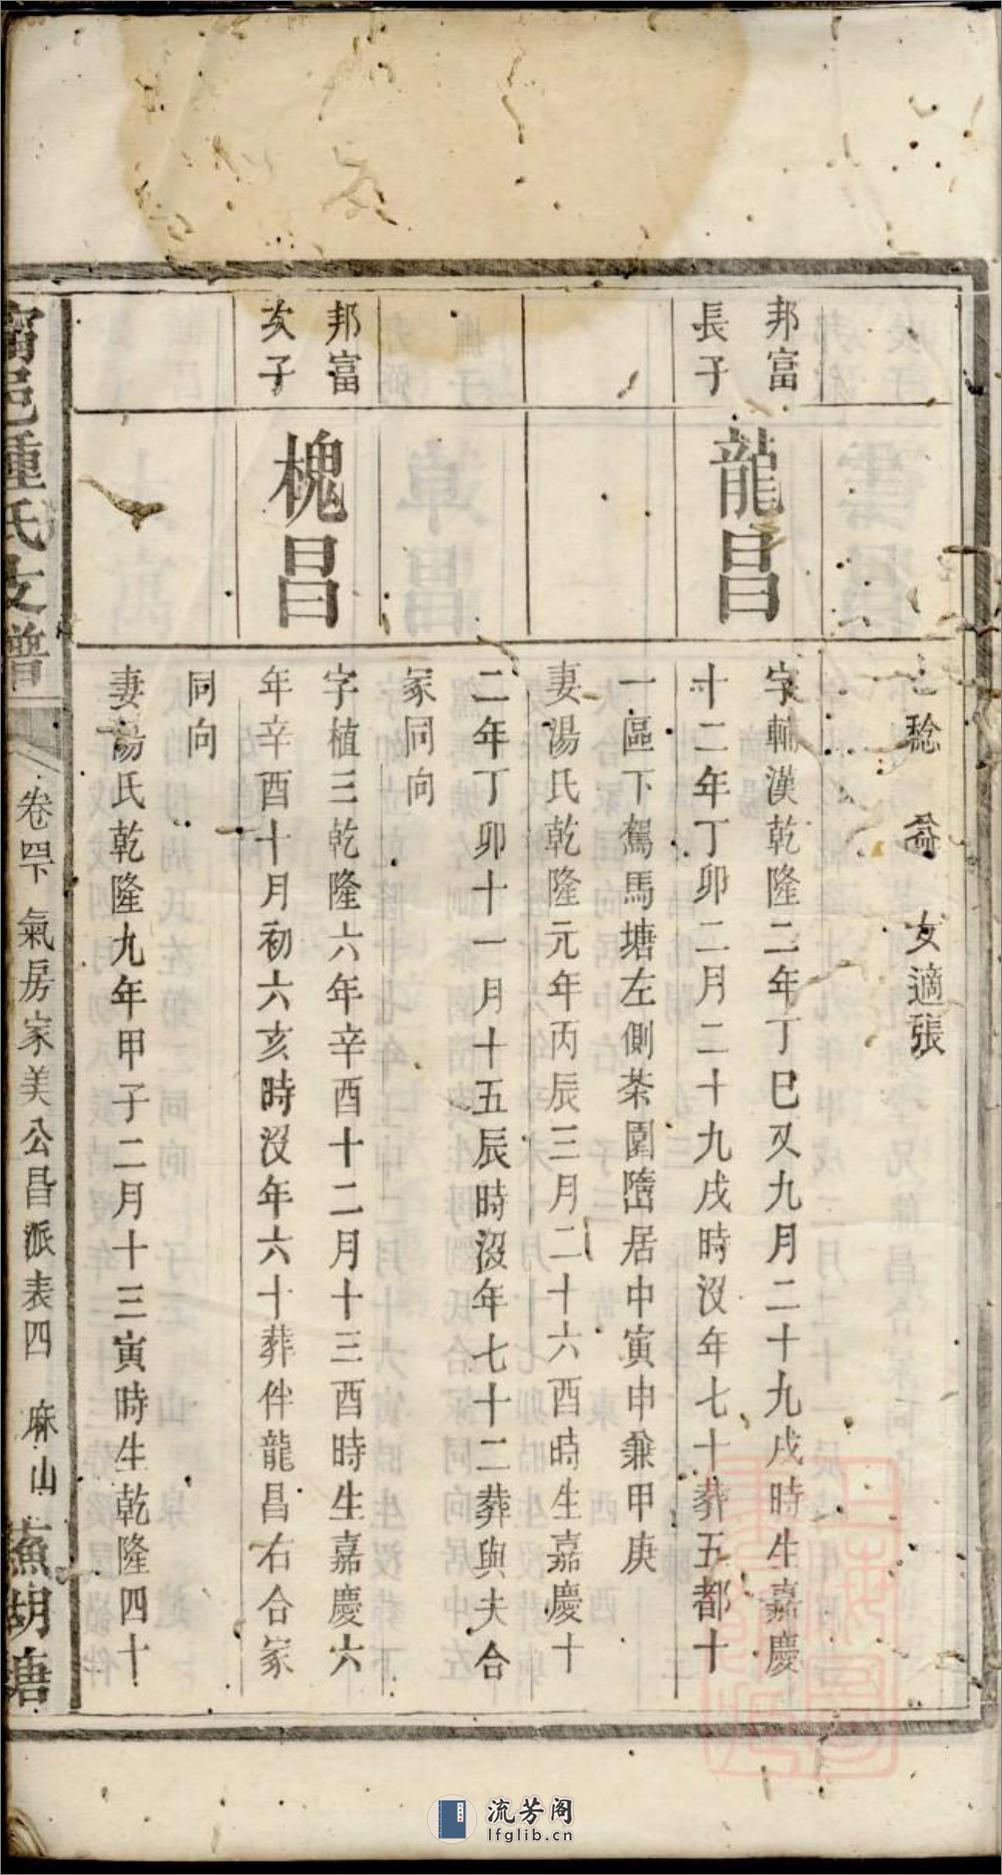 稔 畲 女適張
邦富
長子
龍昌
字輔漢乾隆二年丁巳又九月二十九戌時生嘉慶
十二年丁卯二月二十九戌時沒年七十葬五都十
一區下駕馬塘左側茶園𡺾居中寅申兼甲庚
妻湯氏乾隆元年丙辰三月二十六酉時生嘉慶十
二年丁卯十一月十五辰時沒年七十二葬與夫合
冢同向
邦富
次子
槐昌
字植三乾隆六年辛酉十二月十三酉時生嘉慶六
年辛酉十月初六亥時沒年六十葬伴龍昌右合冢
同向
妻湯氏乾隆九年甲子二月十三寅時生乾隆四十
甯邑鍾氏支譜
卷四下 氣房家美公昌派表四 麻山 漁湖塘
流芳阁
lfglib.cn